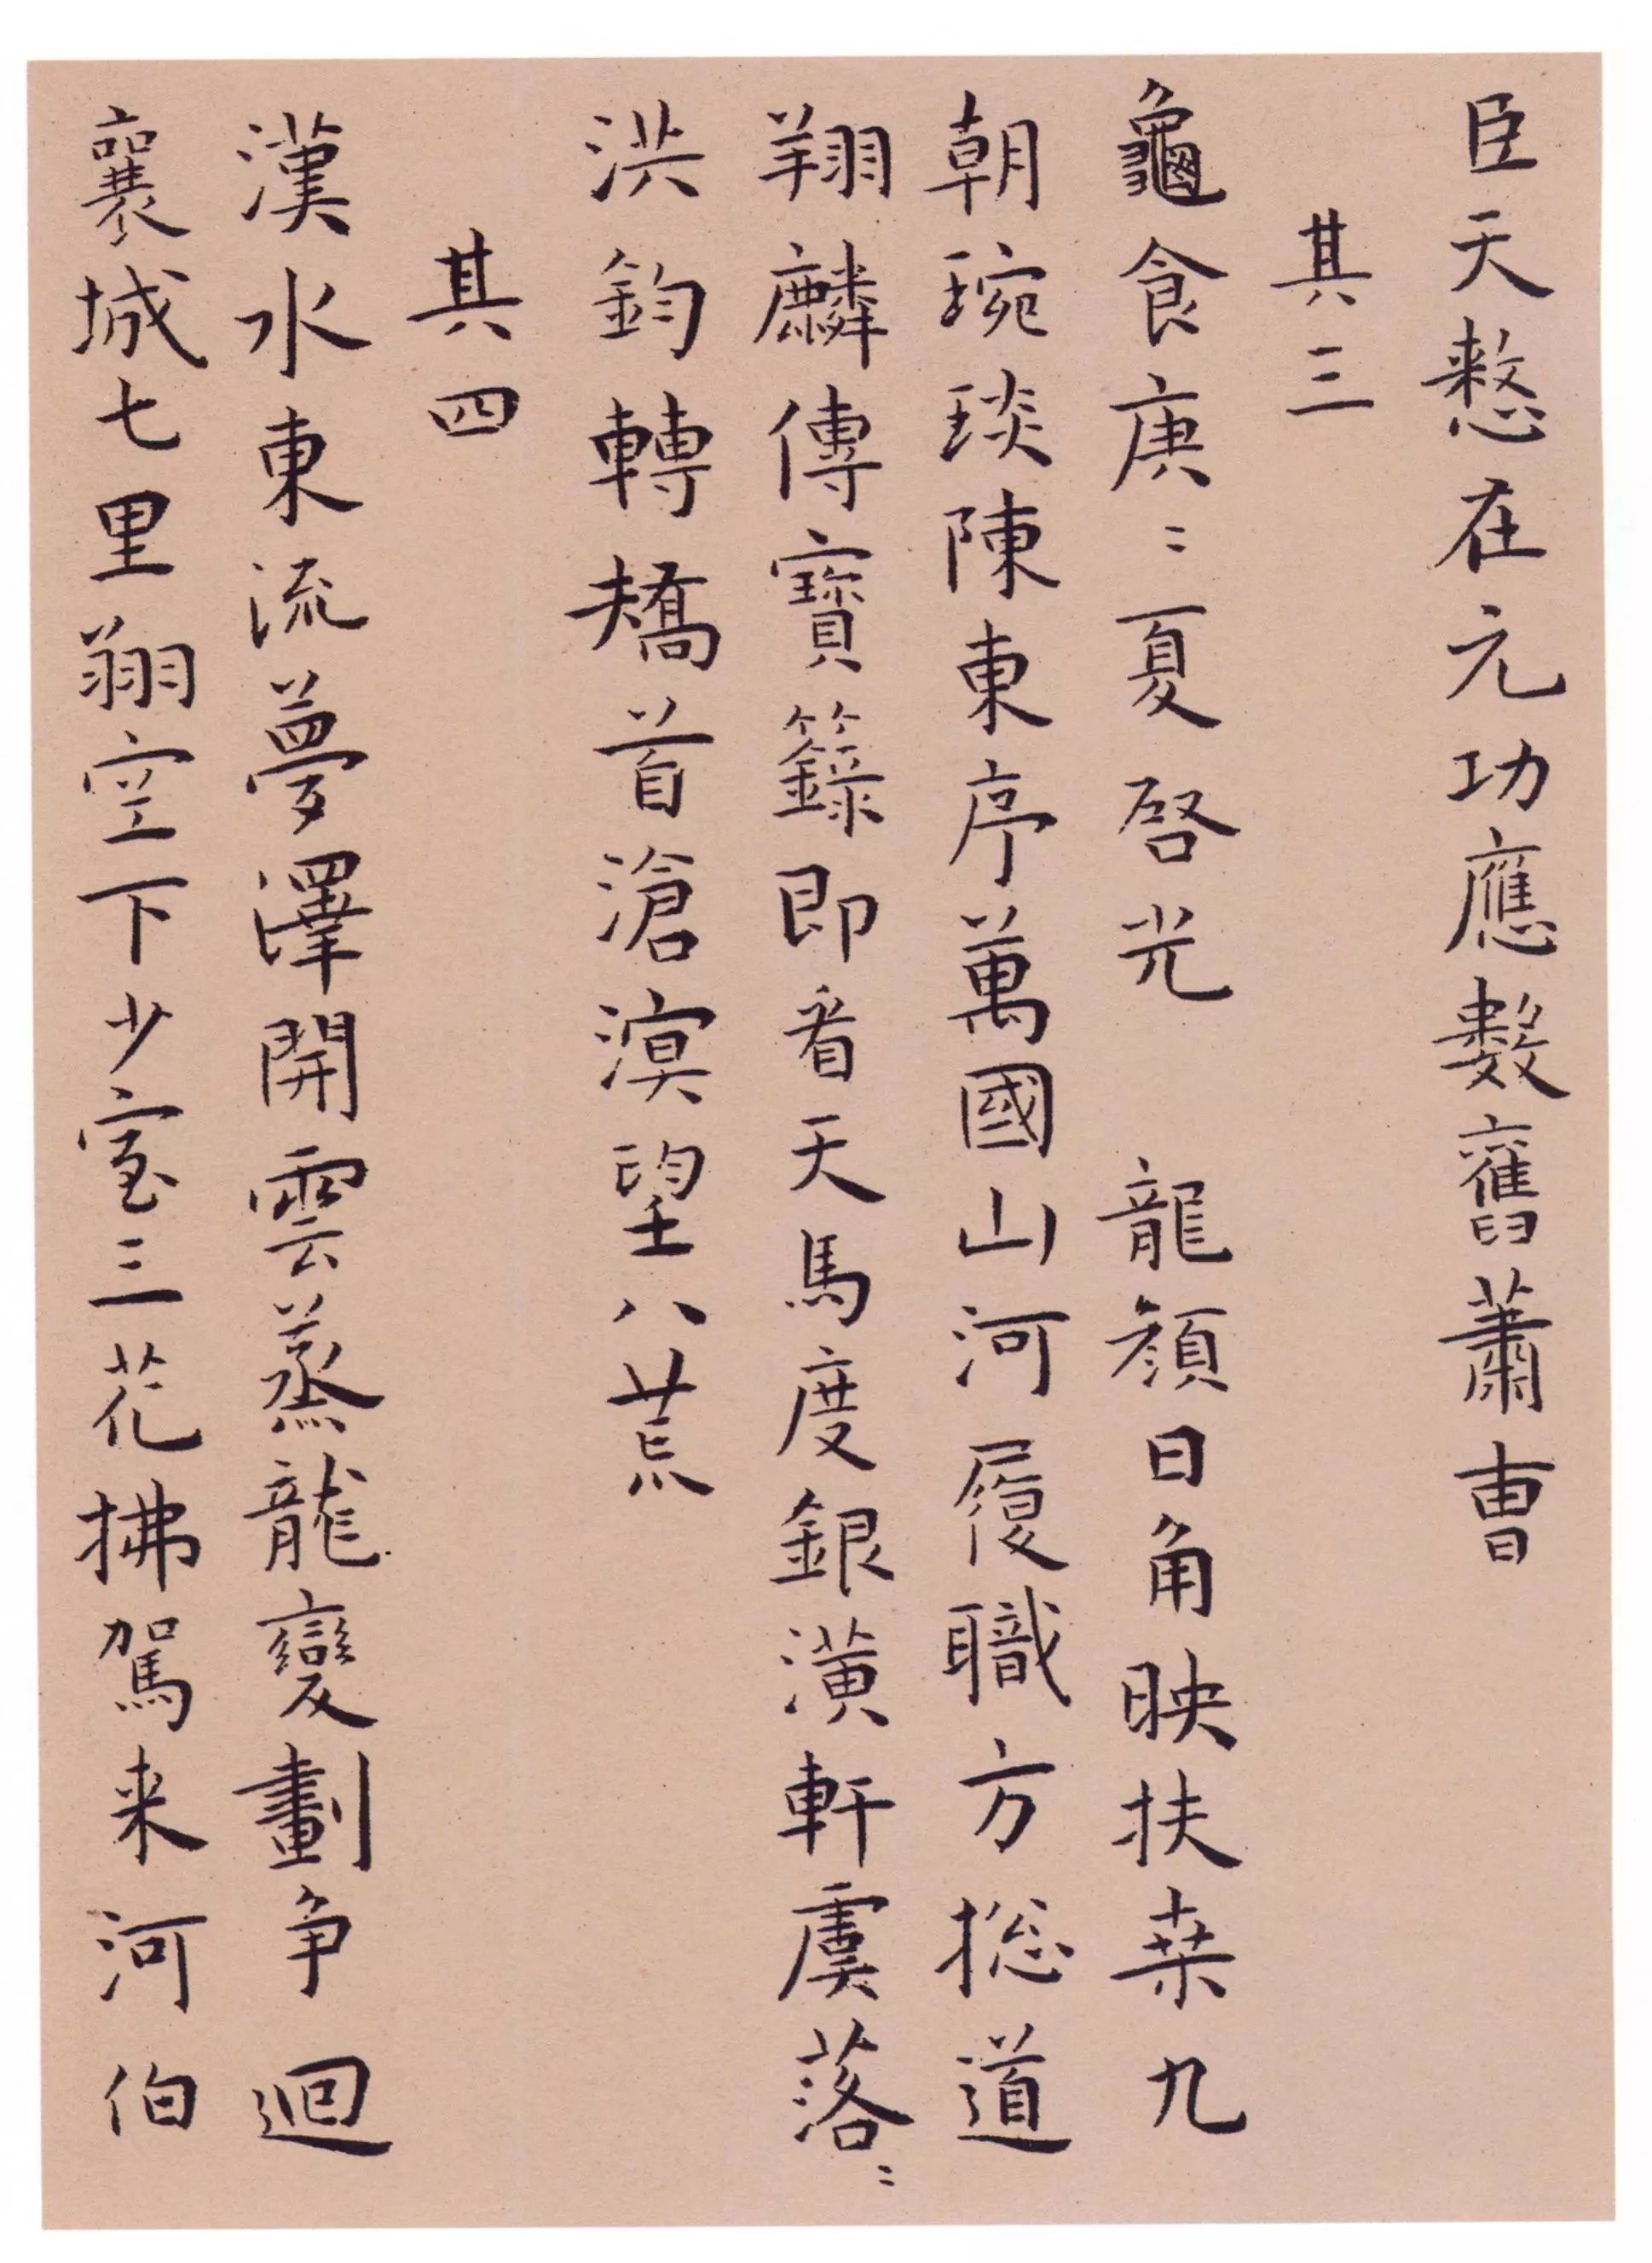 臣天憗在元功應數舊蕭曹
其三
龜食庚〻夏啓光　龍顏日角映扶桒九
朝琬琰陳東序萬國山河履職方捴道
翔麟傳寶籙即看天馬度銀潢軒虞落〻
洪鈞轉矯首滄溟望八荒
其四
漢水東流夢澤開雲蒸龍變劃争迴
襄城七里翔空下少室三花拂駕来河伯